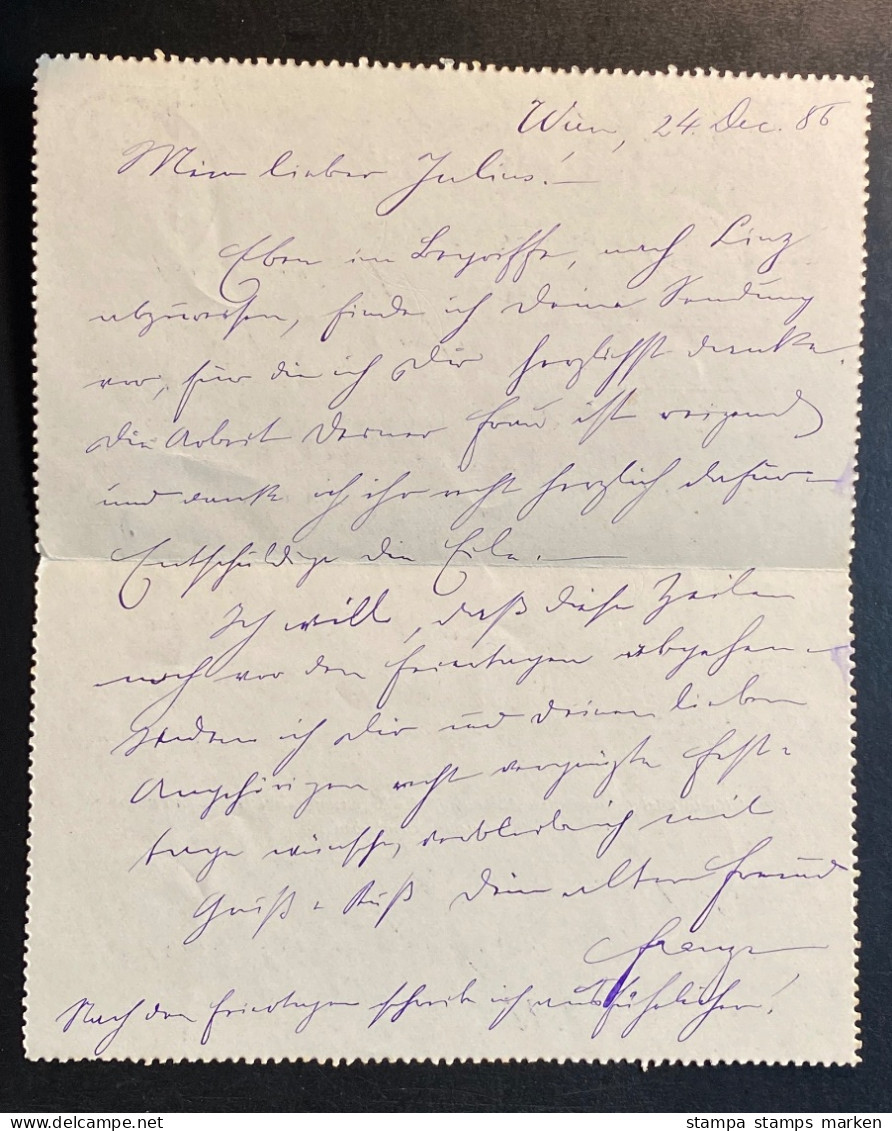 Wien, 24. Dec. 86
Mein lieber Julius! –
Eben im Begriffe, nach Linz
abzureisen, finde ich Deine Sendung
vor, für die ich Dir herzlichst danke.
Die Arbeit Deiner Frau ist reizend
und danke ich ihr recht herzlich dafür –
Entschuldige die Eile. –
Ich will, daß diese Zeilen
noch vor den Feiertagen abgehen –
Indem ich Dir und Deinen lieben
Angehörigen recht vergnügte Fest-
tage wünsche, verbleibe ich mit
Gruß u Kuß Dein alter Freund
Franz
Nach den Feiertagen schreibe ich ausführlicher!
stampa stamps marken